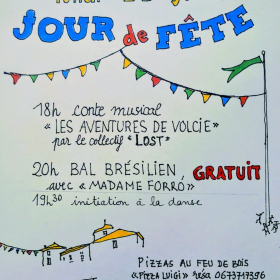 JOUR de FÊTE
18h conte musical
« LES AVENTURES DE VOLCIE »
par le collectif "LOST"
20h BAL BRÉSILIEN, GRATUIT
avec « MADAME FORRÓ »
19h30 initiation à la danse
PIZZAS AU FEU DE BOIS
« PIZZA LUIGI » résa 0673717396